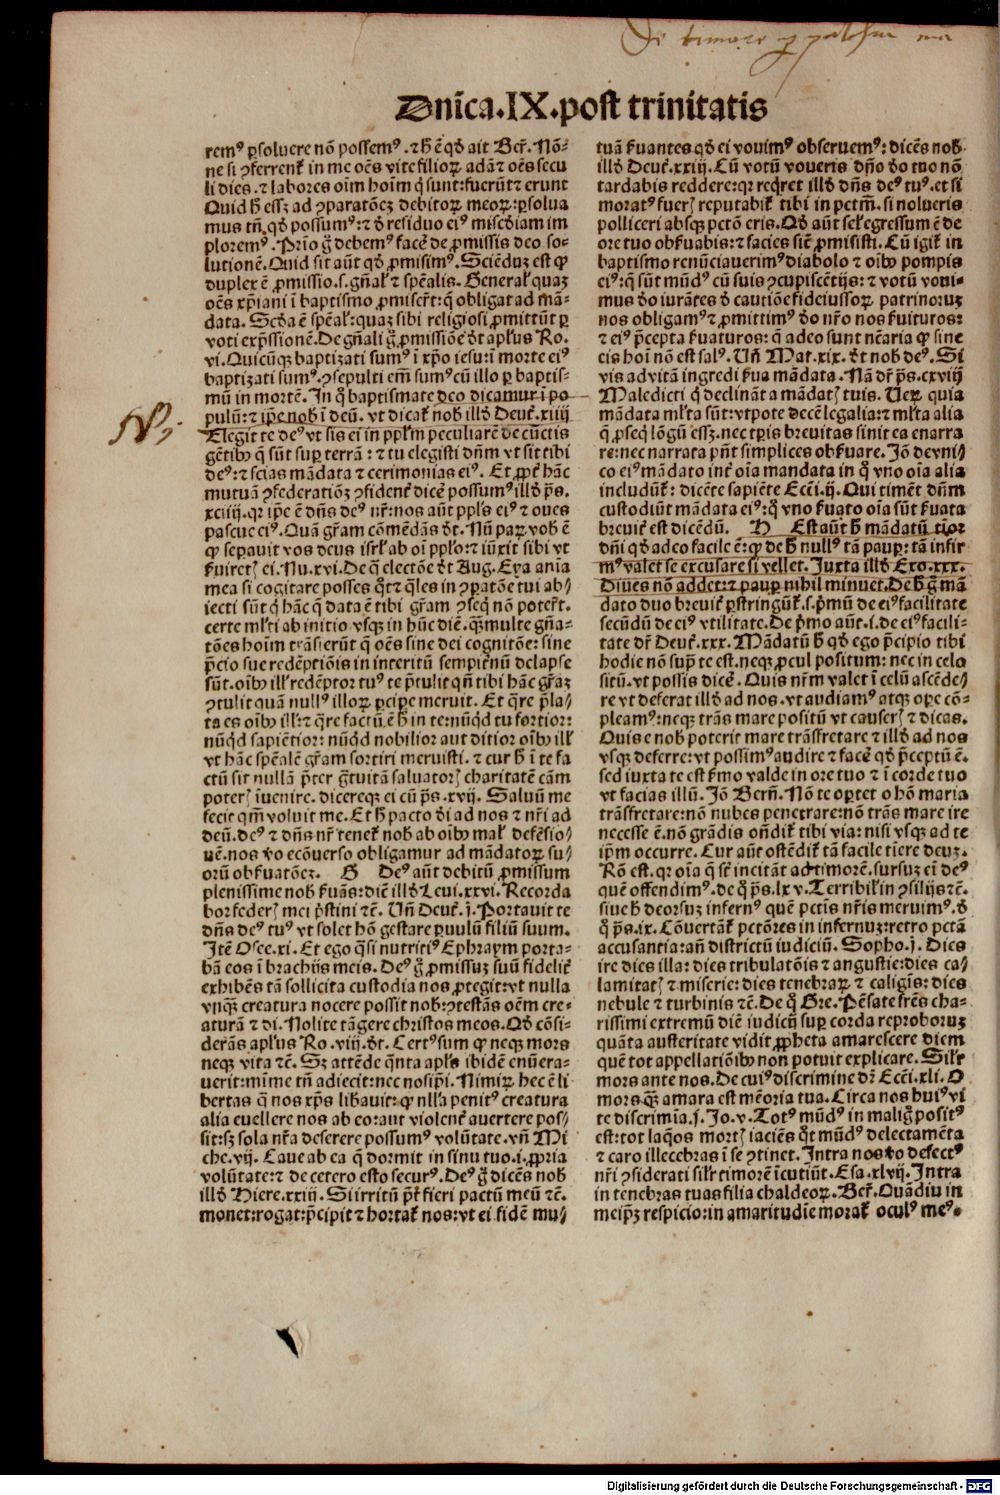 De timore
Dnīca.IX.post trinitatis
remꝰ ꝑsoluere nō possemꝰ.⁊ h̄ ē qd̓ ait Ber̄. Nō-
ne si ꝯferrent̉ in me oēs vite filioꝝ adā ⁊ oēs secu
li dies.⁊ labores oīm hoīm q̇ sunt:fuerūt ⁊ erunt
Quid h̄ essꝫ ad ꝯparatōeꝫ debitoꝝ meoꝝ:ꝑsolua
mus tn̄ qd̓ possumꝰ:⁊ d̓ residuo eiꝰ mīscd̓iam im
ploremꝰ. Prīo g̊ debemꝰ facē de ꝓmissis deo so-
lutionē. Quid sit aūt qd̓ ꝓmisimꝰ. Sciēduꝫ est ꝙ
duplex ē ꝓmissio.s.gn̄al̓ ⁊ sp̄ealis. General̓ quaꝫ
oēs xp̄iani ī baptismo ꝓmiser̄t:q̄ obligat ad mā-
data. Scd̓a ē sp̄eal̓:quaꝫ sibi religiosi ꝓmittūt ꝑ
voti exp̄ssionē. De gn̄ali g̊ ꝓmissiōe d̓t apl̓us Ro.
vi. Quicūqꝫ baptizati sumꝰ ī xp̄o iesu:ī morte eiꝰ
baptizati sumꝰ.ꝯsepulti em̄ sumꝰ cū illo ꝑ baptis-
mū in mortē. In q̊ baptismate deo dicamur ī po
pulū:⁊ ip̄e nob̓ ī deū. vt dicat̉ nob̓ illd̓ Deut̉.xiiij
Elegit te deꝰ vt sis ei in pp̄lm peculiarē de cūctis
gētibꝰ q̄ sūt suꝑ terrā:⁊ tu elegisti dn̄m vt sit tibi
deꝰ:⁊ scias mādata ⁊ cerimonias eiꝰ. Et ꝓpt̉ hāc
mutuā ꝯfederatiōeꝫ ꝯfident̉ dicē possumꝰ illd̓ p̄s.
xciiij.qr ip̄e ē dn̄s deꝰ nr̄:nos aūt ppl̓s eiꝰ ⁊ oues
pascue eiꝰ. Quā gr̄am cōmedās d̓t. Nū paꝝ vob̓ ē
ꝙ sepauit vos deus isrl̓ ab oī ppl̓o:⁊ iūxit sibi vt
ẜuiretꝭ ei. Nu.xvi. De q̄ electōe d̓t Aug. Eya aīa
mea si cogitare posses q̊t ⁊ q̄les in ꝯparatōe tui ab/
iecti sūt q̇ hāc q̄ data ē tibi gr̄am ꝯseq̇ nō poter̄t.
certe ml̓ti ab initio vsqꝫ in hūc diē.qꝫmulte gn̄a-
tōes hoīm trāsierūt q̄ oēs sine dei cognitōe:sine
p̄cio sue redēptiōis in interitū sempit̉nū delapse
sūt.oībꝰ ill̓ redēptor tuꝰ te p̄tulit qn̄ tibi hāc gr̄aꝫ
ꝯtulit quā nullꝰ illoꝝ ꝑcipe meruit. Et q̄re p̄la-
ta es oībꝰ ill̓:⁊ q̄re factū ē h̄ in te:nūqd̓ tu fortior:
nūqd̓ sapiētior:nūqd̓ nobilior aut ditior oībꝰ ill̓
vt hāc sp̄ealē gr̄am sortiri meruisti. ⁊ cur h̄ ī te fa
ctū sit nullā p̄ter g̊tuitā saluatorꝭ charitatē cām
poterꝭ īuenire. dicereqꝫ ei cū p̄s.xvij. Saluū me
fecit qm̄ voluit me. Et h̄ pacto d̓i ad nos ⁊ nr̄i ad
deū.deꝰ ⁊ dn̄s nr̄ tenet̉ nob̓ ab oībꝰ mal̓ defēsio/
nē.nos v̓o ecōuerso obligamur ad mādatoꝝ su/
orū obẜuatōeꝫ. G Deꝰ aūt debitū ꝓmissum
plenissime nob̓ ẜuās:diē illd̓ Leui.xxvi. Recorda
bor federꝭ mei p̓stini ⁊c̄. Vn̄ Deut̉.j. Portauit te
dn̄s deꝰ tuꝰ vt solet hō gestare ꝑuulū filiū suum.
Itē Osee.xi. Et ego q̄si nutritiꝰ Ephraym porta-
bā eos ī brachijs meis. Deꝰ g̊ ꝓmissuꝫ suū fidelit̉
exhibēs tā sollicita custodia nos ꝓtegit:vt nulla
vnqꝫ creatura nocere possit nob̓:ꝯtestās oēm cre-
aturā ⁊ di. Nolite tāgere christos meos. Qd̓ cōsi-
derās apl̓us Ro.viij.d̓t. Certꝰ sum ꝙ neqꝫ mors
neqꝫ vita ⁊c̄. Sꝫ attēde q̄nta apl̓s ibidē enūera-
uerit:mīme tn̄ adiecit:nec nosip̄i. Nimiꝝ hec ē li
bertas q̄ nos xp̄s lib̓auit:ꝙ nl̓la penitꝰ creatura
alia euellere nos ab eo:aut violent̉ auertere pos/
sit:sꝫ sola nr̄a deserere possumꝰ volūtate.vn̄ Mi
che.vij. Caue ab ea q̄ dormit in sinu tuo.i.ꝓpria
volūtate:⁊ de cetero esto securꝰ. Deꝰ g̊ dicēs nob̓
illd̓ Hiere.xxiij. Si irritū pt̄ fieri pactū meū ⁊c̄.
monet:rogat:p̄cipit ⁊ hortat̉ nos:vt ei fidē mu/
tuā ẜuantes qd̓ ei vouimꝰ obseruemꝰ:dicēs nob̓
illd̓ Deut̉.xxiij. Cū votū voueris dn̄o d̓o tuo nō
tardabis reddere:qr reqret illd̓ dn̄s deꝰ tuꝰ.et si
moratꝰ fuerꝭ reputabit̉ tibi in pctm̄.si nolueris
polliceri absqꝫ pctō eris. Qd̓ aūt sel̓ egressum ē de
ore tuo obẜuabis:⁊ facies sic̄ ꝓmisisti. Cū igit̉ in
baptismo renūciauerimꝰ diabolo ⁊ oībꝰ pompis
eiꝰ:q̄ sūt mūdꝰ cū suis ꝯcupiscētijs:⁊ votū voui-
mus d̓o iurātes d̓o cautiōe fideiussoꝝ patrinoruꝫ
nos obligamꝰ ⁊ ꝓmittimꝰ d̓o nr̄o nos ẜuituros:
⁊ eiꝰ p̄cepta ẜuaturos:q̄ adeo sunt nc̄aria ꝙ sine
eis hoī nō est salꝰ. Vn̄ Mat.xix.d̓t nob̓ deꝰ. Si
vis ad vitā ingredi ẜua mādata. Nā dr̄ p̄s.cxviij
Maledicti q̇ declināt a mādatꝭ tuis. Ueꝝ quia
mādata ml̓ta sūt:vtpote decē legalia:⁊ ml̓ta alia
q̄ ꝓseq̇ lōgū essꝫ.nec tꝑis breuitas sinit ea enarra
re:nec narrata pn̄t simplices obẜuare. Jō deꝰ vni-
co eiꝰ mādato int̉ oīa mandata in q̊ vno oīa alia
includūt̉:dicēte sapiēte Ecc̄i.ij. Qui timēt dn̄m
custodiūt mādata eiꝰ:q̊ vno ẜuato oīa sūt ẜuata
breuit̉ est dicēdū. H Est aūt h̄ mādatū tior
dn̄i qd̓ adeo facile ē:ꝙ de h̄ nullꝰ tā pauꝑ:tā infir
mꝰ valet se excusare si vellet. Iuxta illd̓ Exo.xxx.
Diues nō addet:⁊ pauꝑ nihil minuet. De h̄ g̊ mā
dato duo breuit̉ ꝑstringūt̉.s.p̓mū de eiꝰ facilitate
secūdū de eiꝰ vtilitate. De p̓mo aūt.i.de eiꝰ facili-
tate dr̄ Deut̉.xxx. Mādatū h̄ qd̓ ego p̄cipio tibi
hodie nō supꝰ te est.neqꝫ ꝓcul positum:nec in celo
sitū.vt possis dicē. Quis nr̄m valet ī celū ascēde/
re vt deferat illd̓ ad nos.vt audiamꝰ atqꝫ oꝑe cō-
pleamꝰ:neqꝫ trās mare positū vt causerꝭ ⁊ dicas.
Quis e nob̓ poterit mare trāsfretare ⁊ illd̓ ad nos
vsqꝫ deferre:vt possimꝰ audire ⁊ facē qd̓ p̄ceptū ē.
sed iuxta te est ẜmo valde in ore tuo ⁊ ī corde tuo
vt facias illū. Jō Bern̄. Nō te oꝑtet o hō maria
trāsfretare:nō nubes penetrare:nō trās mare ire
necesse ē.nō grādis on̄dit̉ tibi via:nisi vsqꝫ ad te
ip̄m occurre. Cur aūt ostēdit̉ tā facile tiere deuꝫ.
Rō est.qr oīa q̄ st̄ incitāt ad timorē.sursuꝫ ei̓ deꝰ
quē offendimꝰ.de q̊ p̄s.lxv. Terribil̓ in ꝯsilijs ⁊c̄.
siue h̄ deorsuꝫ infernꝰ quē pctīs nr̄is meruimꝰ.d̓
q̊ p̄s.ix. Cōuertāt̉ pctōres in infernuꝫ:retro pctā
accusantia:an̄ districtū iudiciū. Sopho.j. Dies
ire dies illa:dies tribulatōis ⁊ angustie:dies ca/
lamitatꝭ ⁊ miserie:dies tenebraꝝ ⁊ caligīs:dies
nebule ⁊ turbinis ⁊c̄. De q̊ Gre. Pēsate fr̄es cha-
rissimi extremū diē iudicij suꝑ corda reproboruꝫ
quāta austeritate vidit ꝓpheta amarescere diem
quē tot appellatiōibꝰ non potuit explicare. Sil̓r
mors ante nos. De cuiꝰ discrimine dr̄ Ecc̄i.xli. O
mors qꝫ amara est mēoria tua. Circa nos huiꝰ vi
te discrimīa.j.Jo.v. Totꝰ mūdꝰ in malig̊ positꝰ
est:tot laq̊os mortꝭ iaciēs q̊t mūdꝰ delectamēta
⁊ caro illecebras ī se ꝯtinet. Intra nos v̓o defectꝰ
nr̄i ꝯsiderati sil̓r timorē īcutiūt. Esa.xlvij. Intra
in tenebras tuas filia chaldeoꝝ. Ber̄. Quādiu in
meip̄ꝫ respicio:in amaritudīe morat̉ oculꝰ meꝰ.
Digitalisierung gefördert durch die Deutsche Forschungsgemeinschaft - DFG